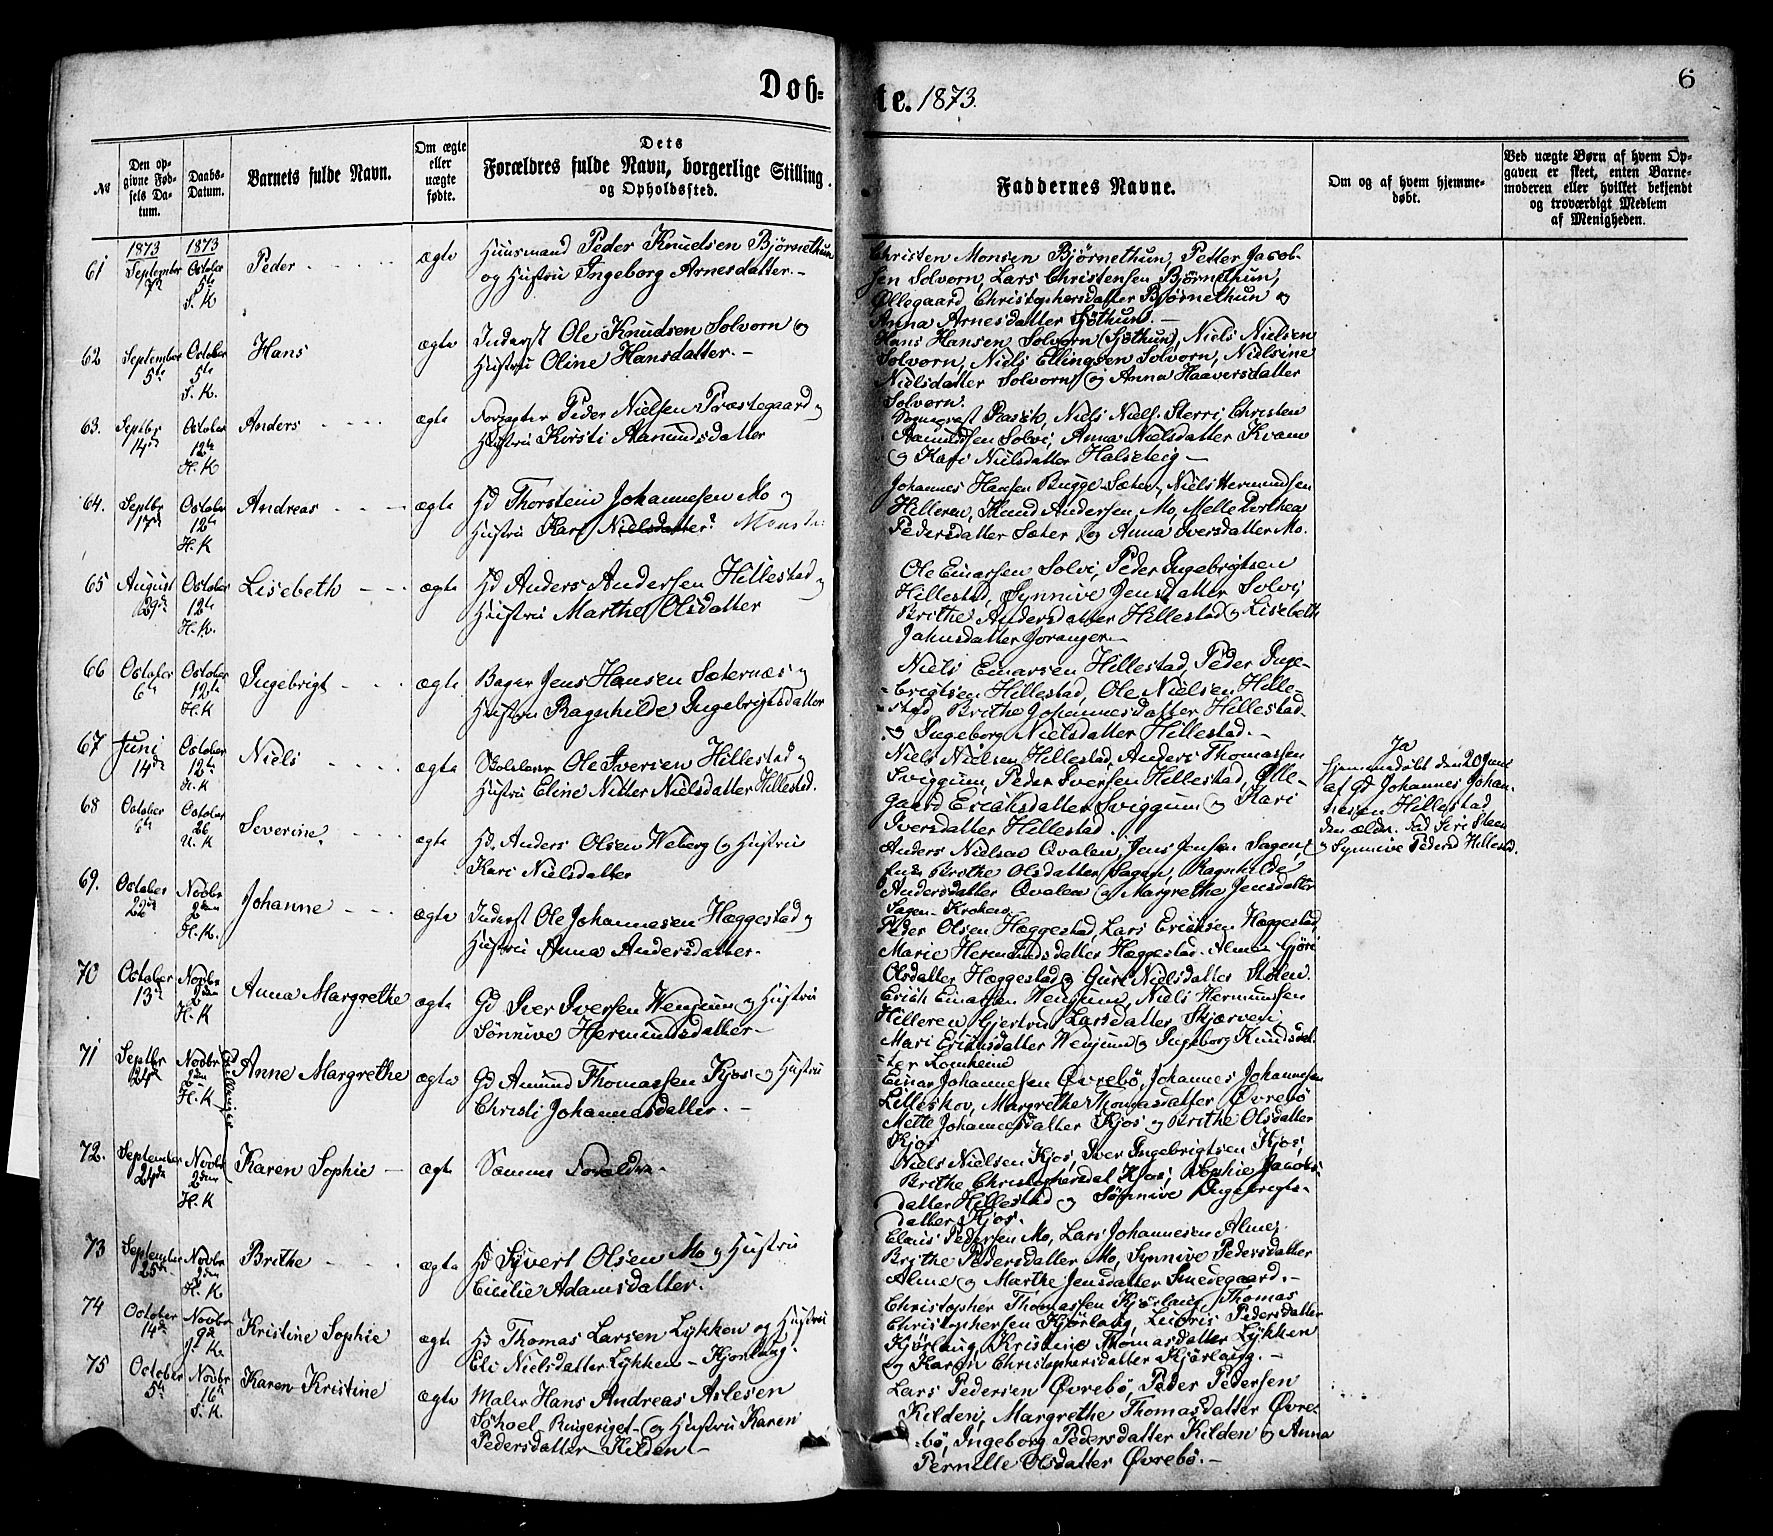 Døb=
te. 1873.
6
№
Den op-
givne Fød-
sels Da-
tum.
Daabs-
Datum.
Barnets fulde Navn.
Om ægte
eller
uægte
fødte.
Dets
Forældres fulde Navn, borgerlige Stilling
og Opholdssted.
Faddernes Navne.
Om og af hvem hjemme-
døbt.
Ved uægte Børn af hvem Op-
gaven er skeet, enten Barne-
moderen eller hvilket bekjendt
og troværdigt Medlem
af Menigheden.
1873
1873
61
September
October
5te
S. K
Peder
ægte
Huusmand Peder Knudsen Bjørnethun
og Hustru Ingeborg Arnesdatter.-
Christen Monsen Bjørnethun, Petter Jacob-
sen Solvorn, Lars Christensen Bjørnethun,
Ollegaard Christophersdatter Bjørnethun og
Anna Arnesdatter Sjøthun. -
62
September
5te
October
5te
S. K.
Hans
ægte
Inderst Ole Knudsen Solvorn og
Hustru Oline Hansdatter. -
Hans Hansen Solvorn (Sjøthun), Niels Nielsen
Solvorn, Niels Ellingsen Solvorn, Nielsine
Nielsdatter Solvorn og Anna Haaversdatter
Solvorn.
63.
Septbr
14de
October
12te
H. K
Anders
ægte
Forpagter Peder Nielsen Præstegaard og
Hustru Kirsti Aamundsdatter
Sogneprest Niels Niels. Sterri Christen
Aamundsen Solvi, Anna Nielsdatter Kvam
og Kari Nielsdatter Halsteig -
64.
Septbr
17de
October
12te
H. K
Andreas
ægte
Gd Thorstein Johannesen Mo og
Hustru Kari Nielsdatter? Mons
Johannes Hansen Bugge Sæter, Niels Hermundsen
Hilleren, Knud Andersen Mo, Melle Perthea
Pedersdatter Sæter og Anna Iversdatter Mo.
65
August
29de
October
12te
H. K.
Lisebeth
ægte
Gd Anders Andersen Hillestad og
Hustru Marthe Olsdatter
Ole Einarsen Solvi, Peder Ingebrigtsen
Hillestad, Synnive Jensdatter Solvi,
Brithe Andersdatter Hillestad og Lisebeth
Jahnsdatter Joranger.-
66
October
6te
October
12te
H. K
Ingebrigt
ægte
Bager Jens Hansen Sæternæs og
Hustru Ragnhilde Ingebrigtsdatter
Niels Einarsen Hillestad, Peder Inge-
brigtsen Hillestad, Ole Nielsen Hille-
stad Brithe Johannesdatter Hillestad
og Ingeborg Nielsdatter Hillestad.-
67
Juni
14de
October
12te
H. K
Niels
ægte
Skolelærer Ole Iversen Hillestad og
Hustru Eline Nitter Nielsdatter Hillestad.
Niels Nielsen Hillestad, Anders Thomassen
Sviggum, Peder Iversen Hillestad, Olle-
gaard Eriksdatter Sviggum og Kari
Iversdatter Hillestad.
Ja
Hjemmedøbt den 20 Juni
af Gd Johannes Johan-
nesen Hillestad
og Synnive Pedersd Hillestad.
68
October
6te
October
26
U. K
Severine
ægte
Gd. Anders Olsen Weberg og Hustru
Kari Nielsdatter
Anders Nielsen Qvalen, Jens Jensen Sagen,
Brithe Olsdatter Sagen, Ragnhilde
Andersdatter Qvalen og Margrethe Jensdatter
Sagen-Kroken
69.
October
Novbr
2den
H. K.
Johanne
ægte
Inderst Ole Johannesen Hæggestad og
Hustru Anna Andersdatter.
Peder Olsen Hæggestad, Lars Eriksen Hæggestad
Marie Hermundsdatter Hæggestad. Gjøri
Olsdatter Hæggestad og Guri Nielsdatter Stolen.
70
October
13de
Novbr
2den
H. K
Anna Margrethe
ægte
Gd Iver Iversen Wenjum og Hustru
Sønnive Hermundsdatter -
Erich Einarsen Wenjum, Niels Hermunsen
Hilleren Gjertru Larsdatter Skjærven
Mari Eriksdatter Wenjum og Ingeborg Knudsdat-
ter Lomheim
71
Septbr
24de
Novbr
2den
H. K
Tvillinger
Anne Margrethe
ægte
Gd Amund Thomassen Kjos og Hustru
Christi Johannesdatter. -
Einar Johannesen Øvrebö, Johannes Johannesen
Lilleskov, Margrethe Thomasdatter Øvrebö
Mette Johannesdatter Kjos og Brithe Olsdatter
Kjos
72.
September
24de
Novbr
2den
H. K
Karen Sophie
ægte
Samme Foræld
Niels Nielsen Kjos, Iver Ingebrigtsen Kjos,
Brithe Christophersdat Kjos, Sophie Jacobs-
datter Hillestad og Sønnive Ingebrigts-
datter Kjos.
73
September
25de
Novbr
2den
H. K
Brithe
ægte
Gd Syvert Olsen Mo og Hustru
Cicilie Adamsdatter.
Claus Pedersen Mo, Lars Johannesen Alme,
Brithe Pedersdatter Mo, Synnive Pedersdatter
Alme og Marthe Jensdatter Smedegaard.-
74
October
14de
Novbr
9de
Kristine Sophie
ægte
Gd Thomas Larsen Lykken og Hustru
Eli Nielsdatter Lykken - Kjørlaug.
Christopher Thomassen Kjørlaug, Thomas
Christophersen Kjørlaug, Pedersdatter
Kjørlaug, Kristine Thomasdatter Lykken
og Karen Christophersdatter Kjørlaug. -
75
October
5te
Novbr
16de
S. K.
Karen Kristine
ægte
Maler Hans Andreas Aslesen
Schoel Ringeriget - og Hustru Karen
Pedersdatter Kilden -
Lars Pedersen Øvrebø, Peder Pedersen
Kilden, Margrethe Thomasdatter Øvre-
bö, Ingeborg Pedersdatter Kilden og Anna
Pernille Olsdatter Øvrebö. -